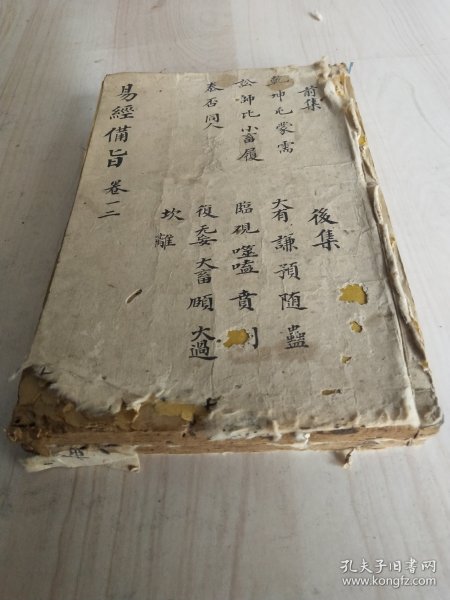 易經備旨 卷一二
前集
乾坤屯蒙需
訟師比小畜履
泰否同人
後集
大有謙預随蠱
臨硯噬嗑賁剝
復无妄大畜頤大過
坎離
孔夫子旧书网
www.kongfz.com